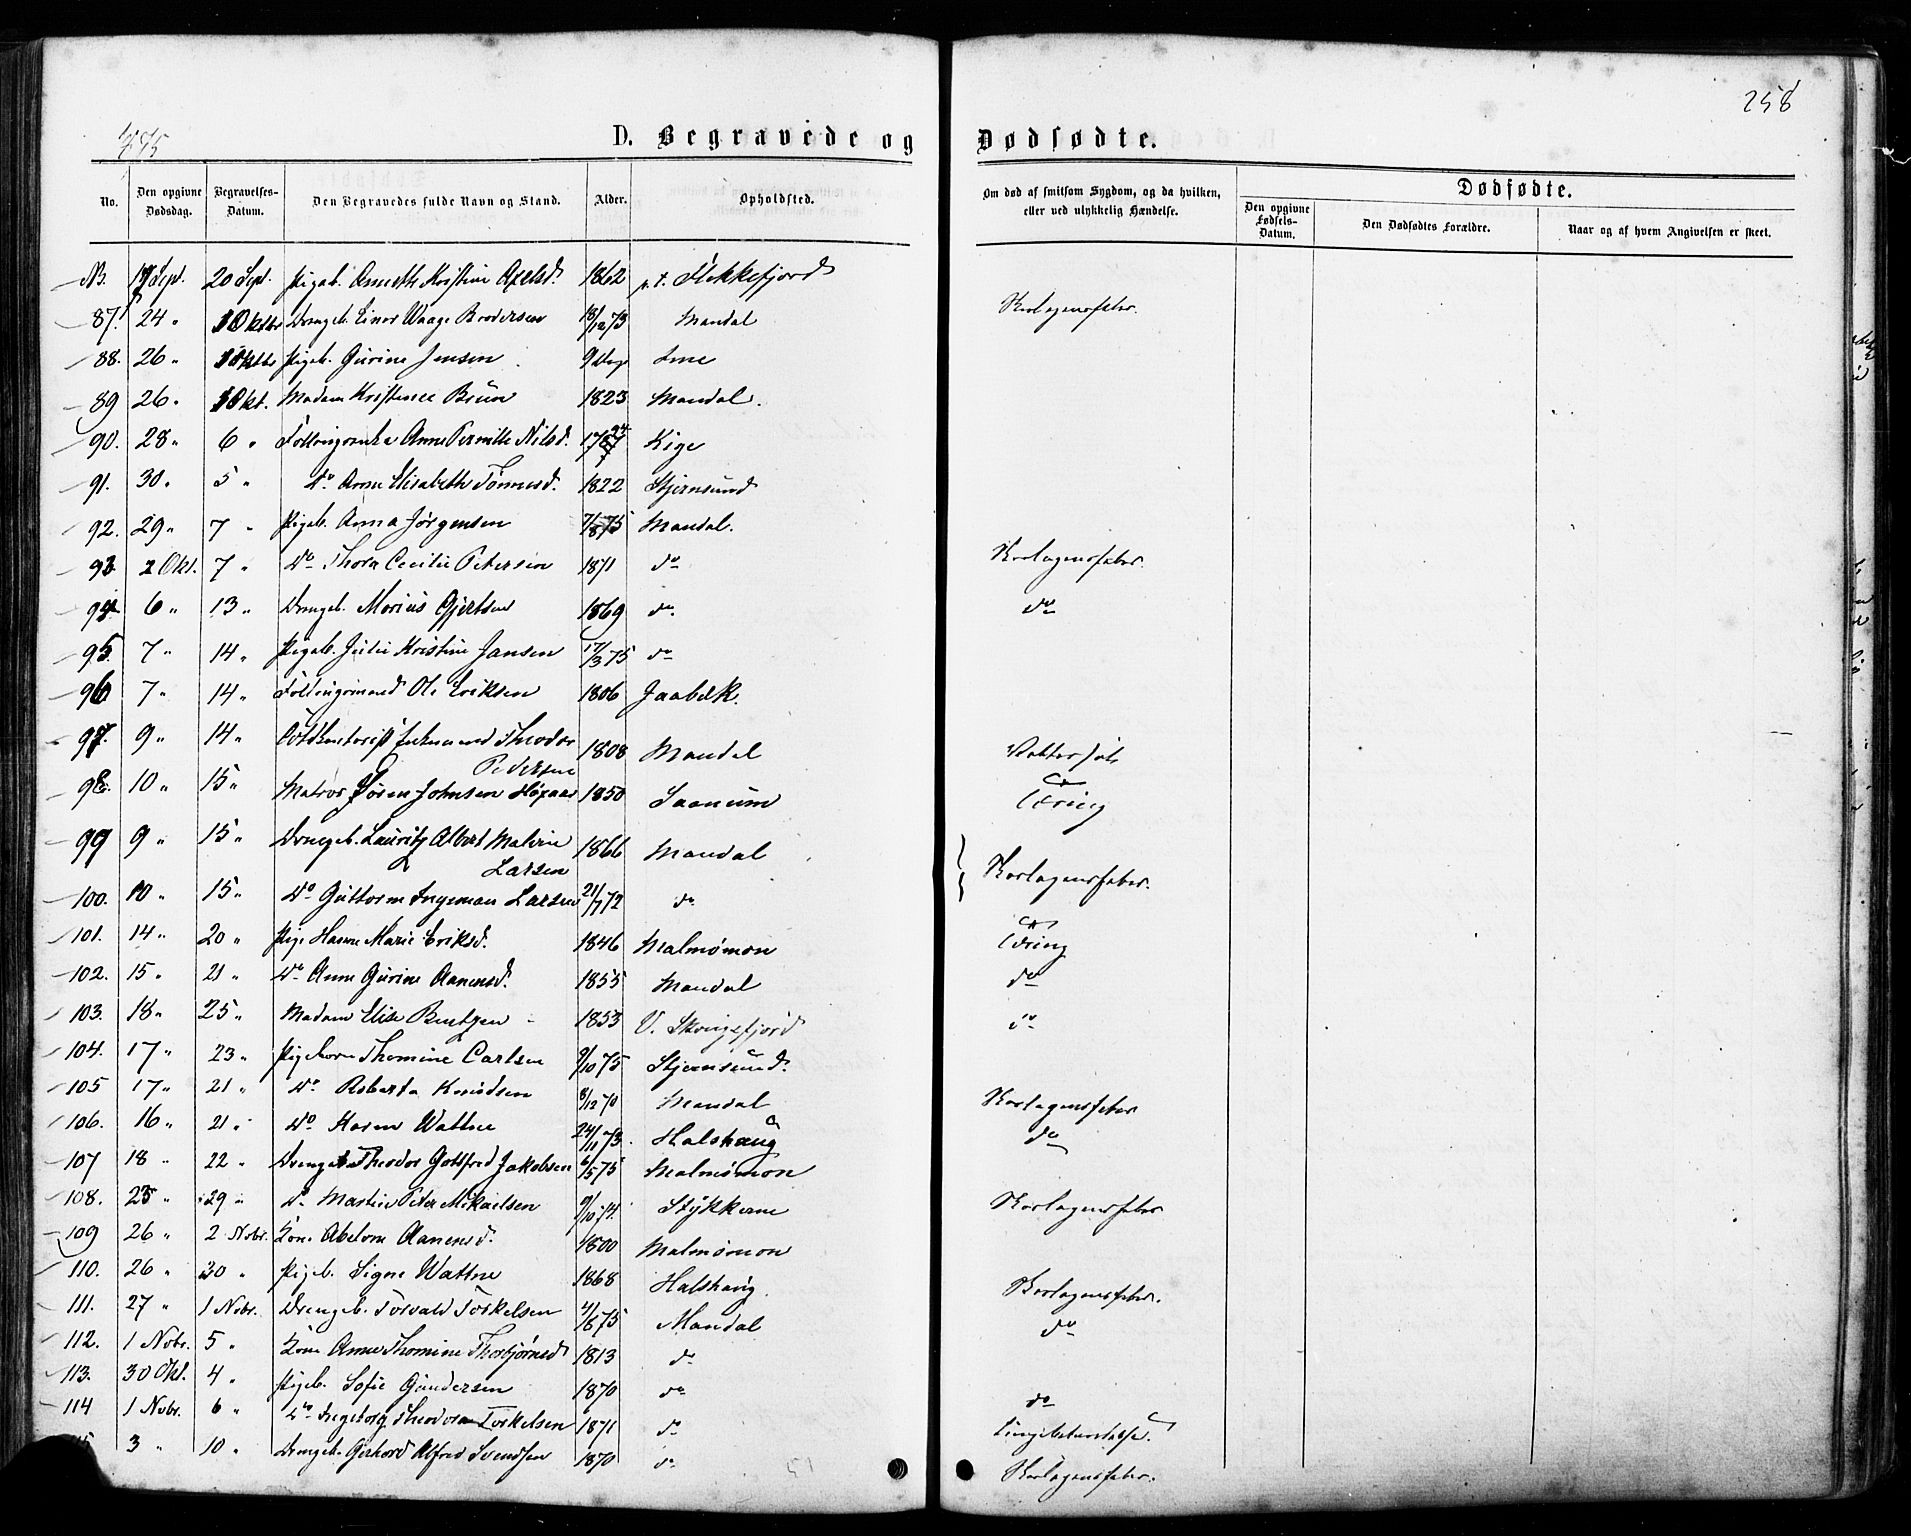 1875
258
D. Begravede og Dødfødte.
No.
Den opgivne Dødsdag.
Begravelses-Datum.
Den Begravedes fulde Navn og Stand.
Alder.
Opholdsted.
Om død af smitsom Sygdom, og da hvilken, eller ved ulykkelig Hændelse.
Dødfødte.
Den opgivne Fødsels-Datum.
Den Dødfødtes Forældre.
Naar og af hvem Angivelsen er skeet.
Sept. 20 Sept. Pigeb. Annethe Kristine Axelsd. 1862 p. t. Flekkefjord
87. 24 " Oktbr Drengeb. Einar Waage Brodersen 18/12 73 Mandal Skarlagensfeber.
88. 26 " Oktbr Pigeb. Gurine Jensen 9 Dage Ime
89 26 " Okt. Madam Kristence Brün 1823 Mandal.
90. 28 " 6 " Anne Pernille Nilsd. Kige
91. 30 " 5 " Do Anne Elisabeth Tønnesd. 1822 Stjernsund
92. 29 " 7 " Pigeb. Anna Jørgensen 7/8 75 Mandal.
93. 2 Okt. 7 " Do Thora Cecilie Petersen 1871 do Skarlagensfeber.
94. 6 " 13 " Drengeb. Marius Gjertsen 1869 do do
95. 7 " 14 " Pigeb. Julie Kristine Jansen 17/3 75 do
96 7 " 14 " Ole Eriksen 1806 Jaabæk.
97. 9 " 14 " Theodor Pedersen 1808 Mandal
98. 10 " 15 " Matros Søren Johnsen 1850 Saanum Tæring
99 9 " 15 " Drengeb. Lauritz Albert Malvin Larsen 1866 Mandal Skarlagensfeber.
100. 10 " 15 " Do Guttorm Ingeman Larsen 21/7 72 do
101. 14 " 20 " Pige Hanne Marie Eriksd. 1846 Malmømon Tæring
102. 15 " 21 " Do Anne Gurine Aanensd. 1855 Mandal do
103. 18 " 25 " Madam Elise Bentzen 1853 V. Skogsfjord do
104. 17 " 23 " Pigebarn Thomine Carlsen 9/10 75 Stjernsund.
105 17 " 21 " Do Roberta Knudsen 8/12 70 Mandal Skarlagensfeber
106. 16 " 21 " Do Karen Wattne 24/11 73. Halshaug do
107 18 " 22 " Drengeb. Theodor Gottfred Jakobsen 6/5 75 Malmømon
108. 25 " 29 " Do Martin Peter Mikaelsen 9/10 74. Stykkerne Skarlagensfeber
109 26 " 2 Nobr. Kone Abelone Aanensd. 1800 Malmømon
110. 26 " 30 " Pigeb. Signe Wattne 1868 Halshaug. Skarlagensfeber.
111. 27 " 1 Nobr. Drengeb. Torvald Torkelsen 4/6 75 Mandal do
112. 1 Nobr. 5 " Kone Anne Thomine Thorbjørnsd 1813 do
113. 30 Okt. 4 " Pigeb. Sofie Gundersen 1870 do do
114 1 Nobr. 6 " Do Ingeborg Theodora Torkelsen 1871 do Lungebetændelse.
3 " 10 " Drengeb. Gerhard Alfred Svendsen 1870 do Skarlagensfeber.